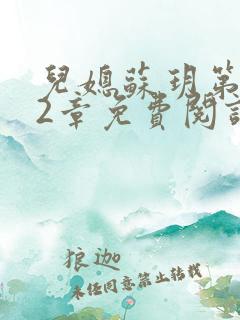 兒媳蘇玥第
2章免費閱
狼迦
未任同意禁止转载